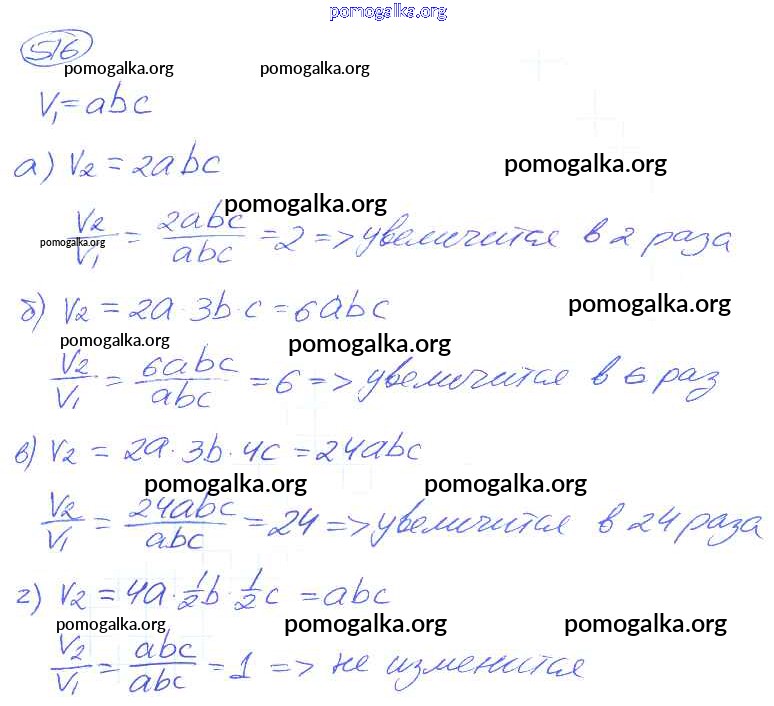 pomogalka.org
516
pomogalka.org pomogalka.org
V₁ = abc
а) V₂ = 2abc
pomogalka.org
pomogalka.org
V₂/V₁ = 2abc/abc = 2 => увеличится в 2 раза
pomogalka.org
б) V₂ = 2a · 3b · c = 6abc
pomogalka.org
pomogalka.org pomogalka.org
V₂/V₁ = 6abc/abc = 6 => увеличится в 6 раз
в) V₂ = 2a · 3b · 4c = 24abc
pomogalka.org pomogalka.org
V₂/V₁ = 24abc/abc = 24 => увеличится в 24 раза
г) V₂ = 4a · 1/2 b · 1/2 c = abc
pomogalka.org pomogalka.org pomogalka.org
V₂/V₁ = abc/abc = 1 => не изменится